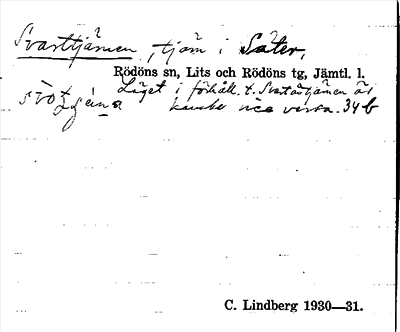 Svarttjärnen, tjärn i Säter,
Rödöns sn, Lits och Rödöns tg, Jämtl. l.
Läget i förhåll. t. Svartåstjärnen är
kanske vice versa. 34 b
C. Lindberg 1930—31.